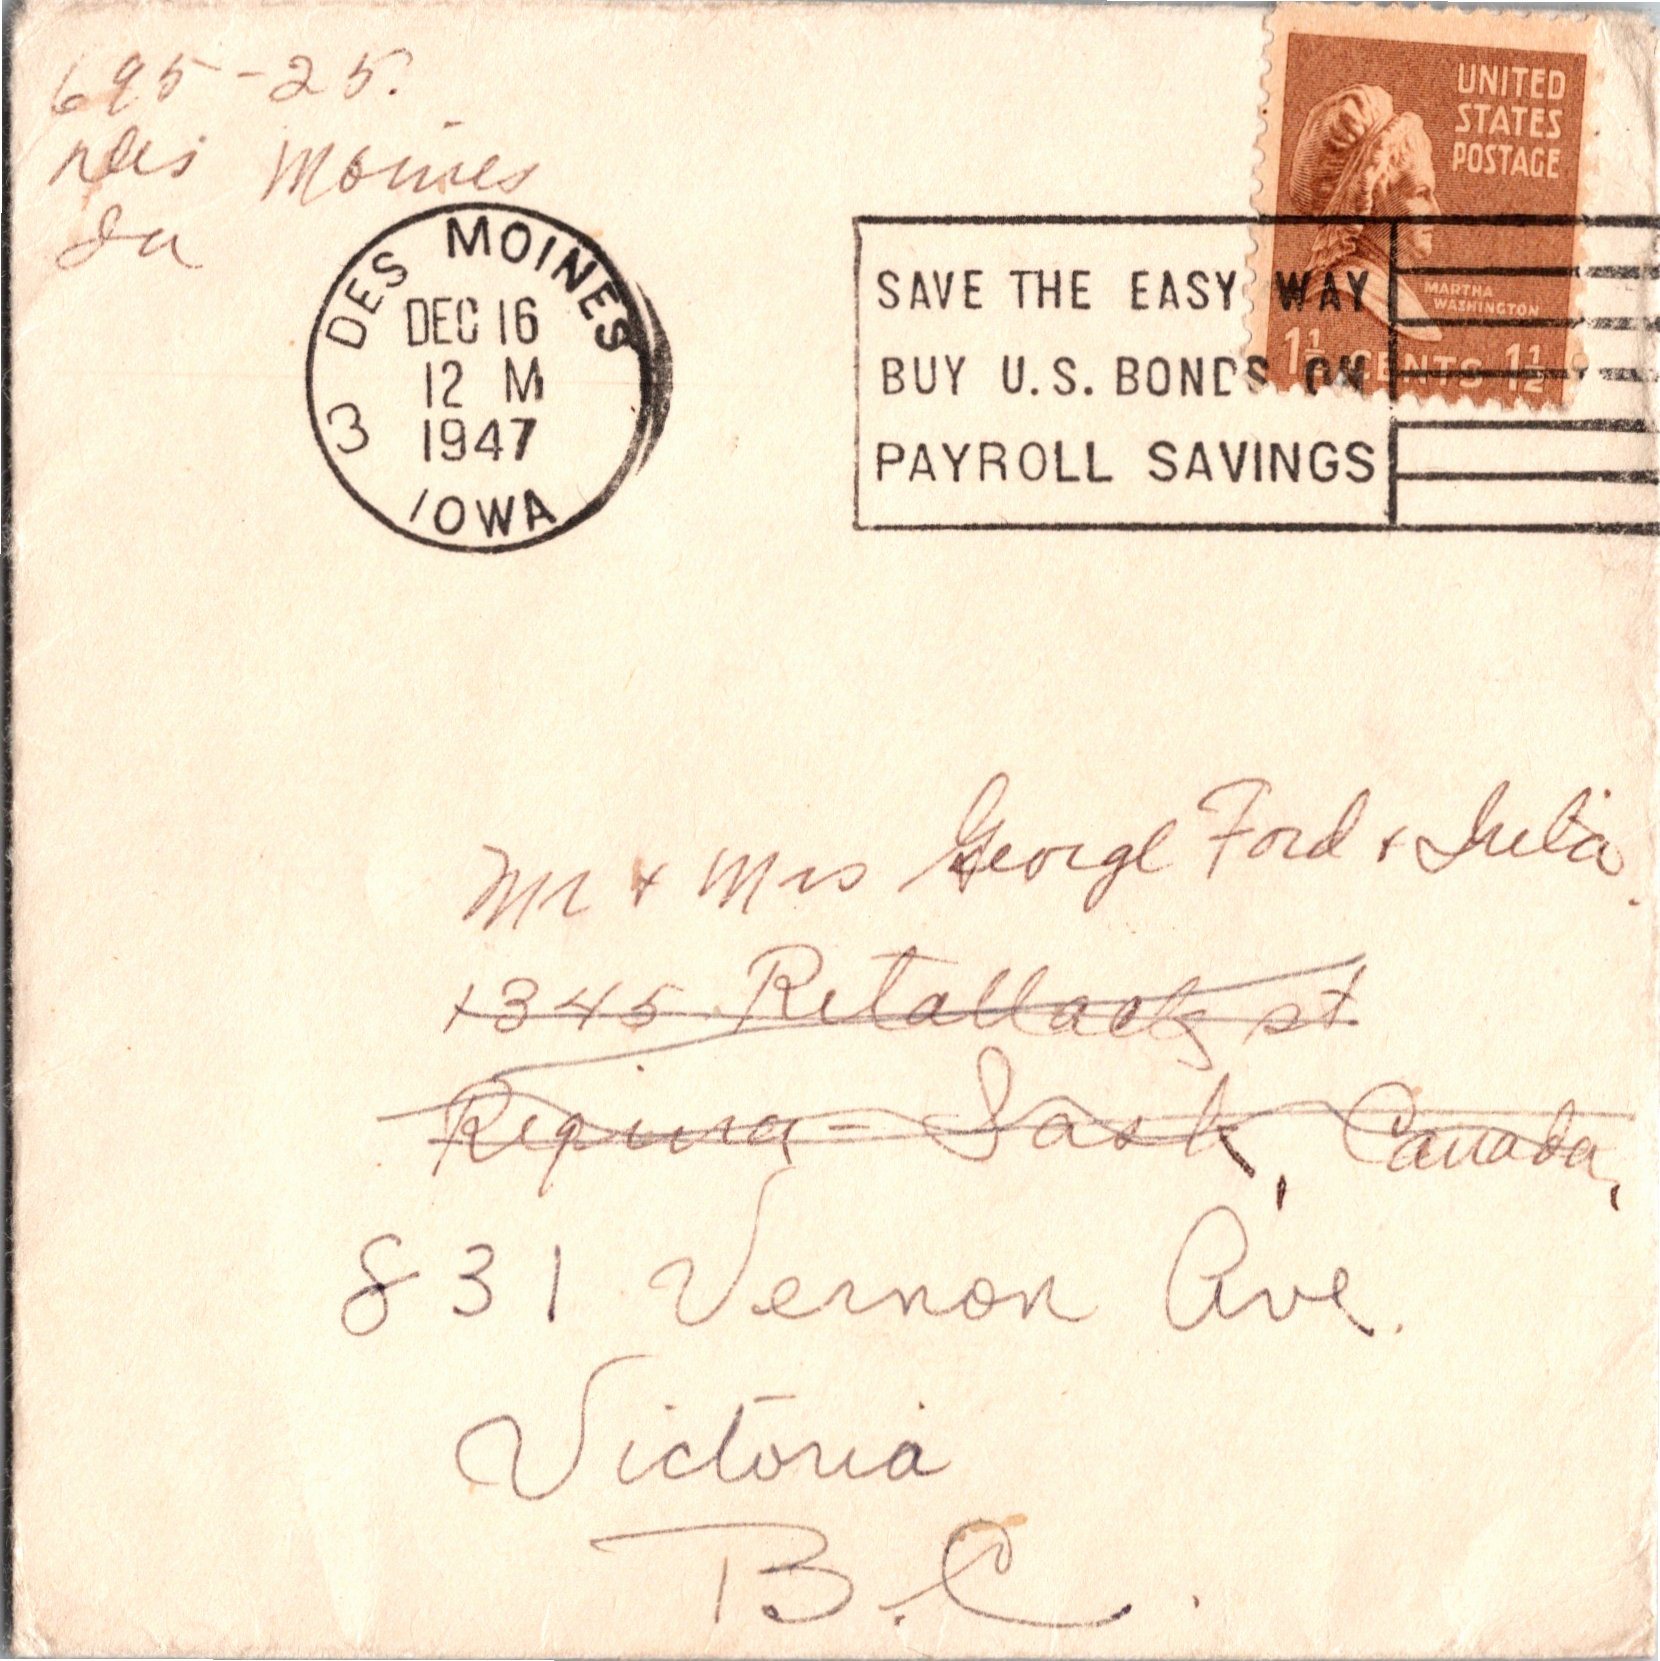 695-25.
Des Moines
Ia
UNITED
STATES
POSTAGE
MARTHA
WASHINGTON
1½ CENTS 1½
3 DES MOINES IOWA
DEC 16
12 M
1947
SAVE THE EASY WAY
BUY U.S. BONDS ON
PAYROLL SAVINGS
Mr + Mrs George Ford + Julia.
1345 Retallack st
Regina - Sask, Canada,
831 Vernon Ave.
Victoria
B.C.